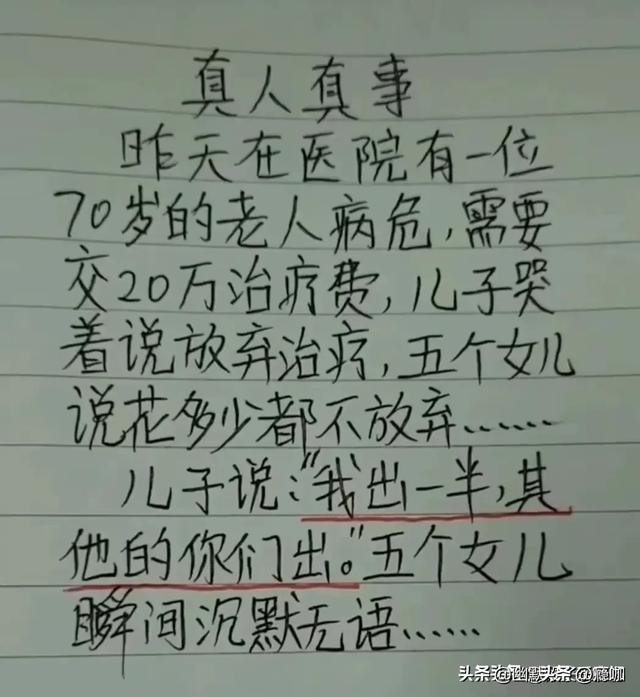 真人真事
昨天在医院有一位
70岁的老人病危,需要
交20万治疗费,儿子哭
着说放弃治疗,五个女儿
说花多少都不放弃……
儿子说:“我出一半,其
他的你们出。”五个女儿
瞬间沉默无语……